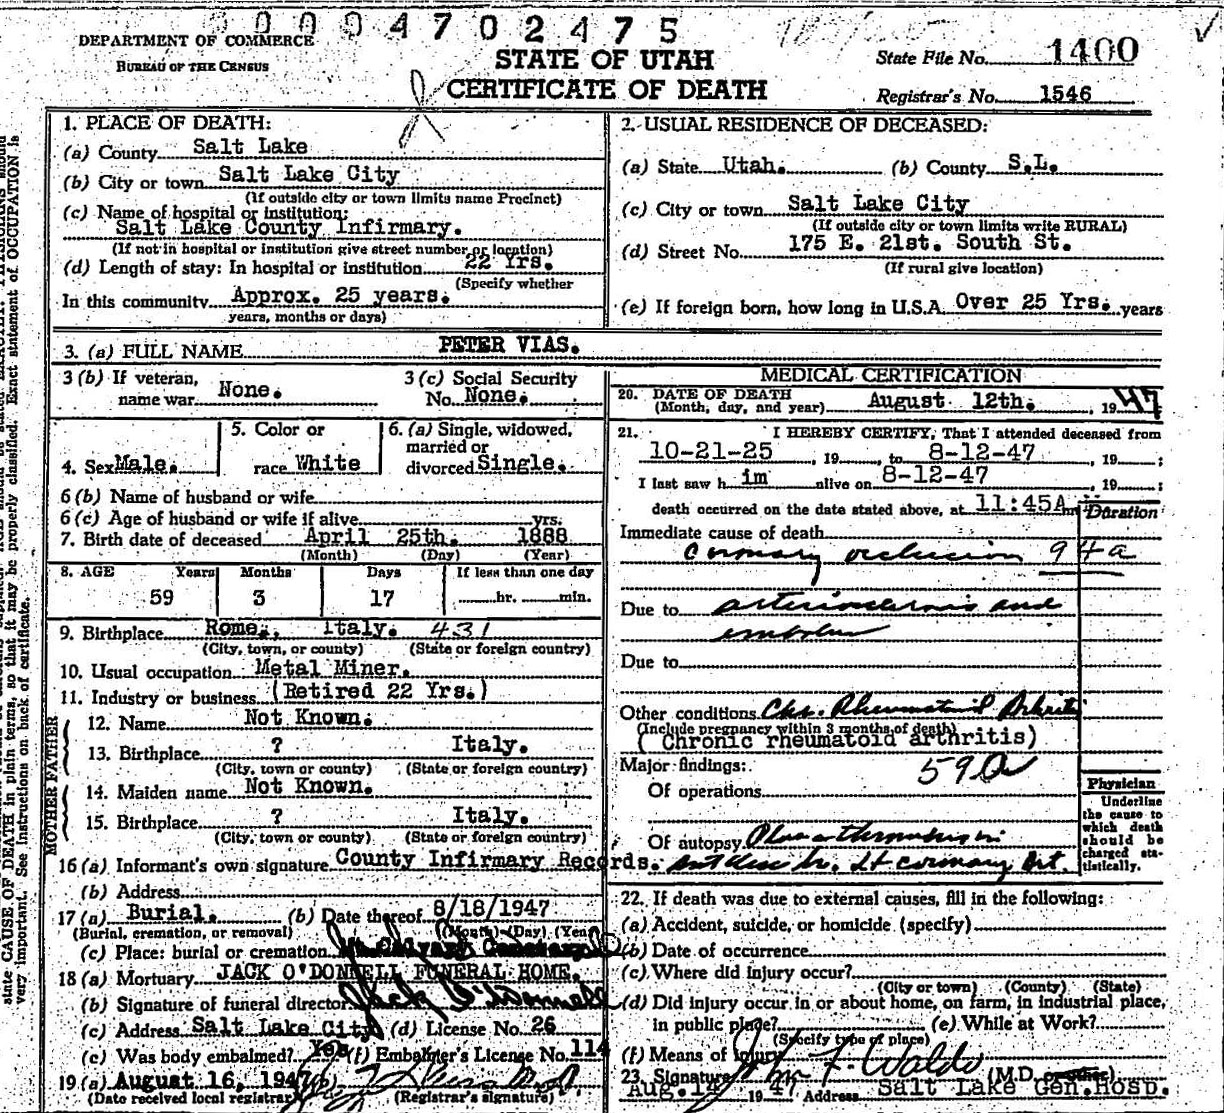 0004702475
DEPARTMENT OF COMMERCE
BUREAU OF THE CENSUS
STATE OF UTAH
CERTIFICATE OF DEATH
State File No. 1400
Registrar's No. 1546
1. PLACE OF DEATH:
(a) County Salt Lake
(b) City or town Salt Lake City
(If outside city or town limits name Precinct)
(c) Name of hospital or institution:
Salt Lake County Infirmary.
(If not in hospital or institution give street number or location)
(d) Length of stay: In hospital or institution 22 Yrs.
(Specify whether
In this community Approx. 25 years.
years, months or days)
2. USUAL RESIDENCE OF DECEASED:
(a) State Utah. (b) County S.L.
(c) City or town Salt Lake City
(If outside city or town limits write RURAL)
(d) Street No. 175 E. 21st. South St.
(If rural give location)
(e) If foreign born, how long in U.S.A. Over 25 Yrs. years
3. (a) FULL NAME PETER VIAS.
3 (b) If veteran, name war None.
3 (c) Social Security No. None.
4. Sex Male.
5. Color or race White
6. (a) Single, widowed, married or divorced Single.
6 (b) Name of husband or wife
6 (c) Age of husband or wife if alive yrs.
7. Birth date of deceased April 25th. 1888
(Month) (Day) (Year)
8. AGE Years Months Days If less than one day
59 3 17 hr. min.
9. Birthplace Rome, Italy. 431
(City, town, or county) (State or foreign country)
10. Usual occupation Metal Miner.
11. Industry or business (Retired 22 Yrs.)
MOTHER FATHER
12. Name Not Known.
13. Birthplace ? Italy.
(City, town or county) (State or foreign country)
14. Maiden name Not Known.
15. Birthplace ? Italy.
(City, town or county) (State or foreign country)
16 (a) Informant's own signature County Infirmary Records.
(b) Address
17 (a) Burial. (b) Date thereof 8/18/1947
(Burial, cremation, or removal) (Month) (Day) (Year)
(c) Place: burial or cremation Mt Calvary Cemetery
18 (a) Mortuary JACK O'DONNELL FUNERAL HOME.
(b) Signature of funeral director Jack O'Donnell
(c) Address Salt Lake City (d) License No. 26
(e) Was body embalmed? Yes (f) Embalmer's License No. 114
19 (a) August 16, 1947 (b)
(Date received local registrar) (Registrar's signature)
MEDICAL CERTIFICATION
20. DATE OF DEATH
(Month, day, and year) August 12th. , 19 47
21. I HEREBY CERTIFY, That I attended deceased from
10-21-25 , 19 , to 8-12-47 , 19 ;
I last saw h im alive on 8-12-47 , 19 ;
death occurred on the date stated above, at 11:45A m
Duration
Immediate cause of death
coronary occlusion 94a
Due to arteriosclerosis and
embolus
Due to
Other conditions Chr. Rheumatoid Arthritis
(Include pregnancy within 3 months of death)
(Chronic rheumatoid arthritis)
Major findings: 59a
Of operations
Of autopsy
br. Lt coronary Art.
Physician
Underline the cause to which death should be charged statistically.
22. If death was due to external causes, fill in the following:
(a) Accident, suicide, or homicide (specify)
(b) Date of occurrence
(c) Where did injury occur?
(City or town) (County) (State)
(d) Did injury occur in or about home, on farm, in industrial place,
in public place? (e) While at Work?
(Specify type of place)
(f) Means of injury
23. Signature John F. Waldo (M.D. or other)
Aug. 19 47 Address Salt Lake Gen. Hosp.
state CAUSE OF DEATH in plain terms, so that it may be properly classified. Exact statement of OCCUPATION is
very important. See instructions on back of certificate.